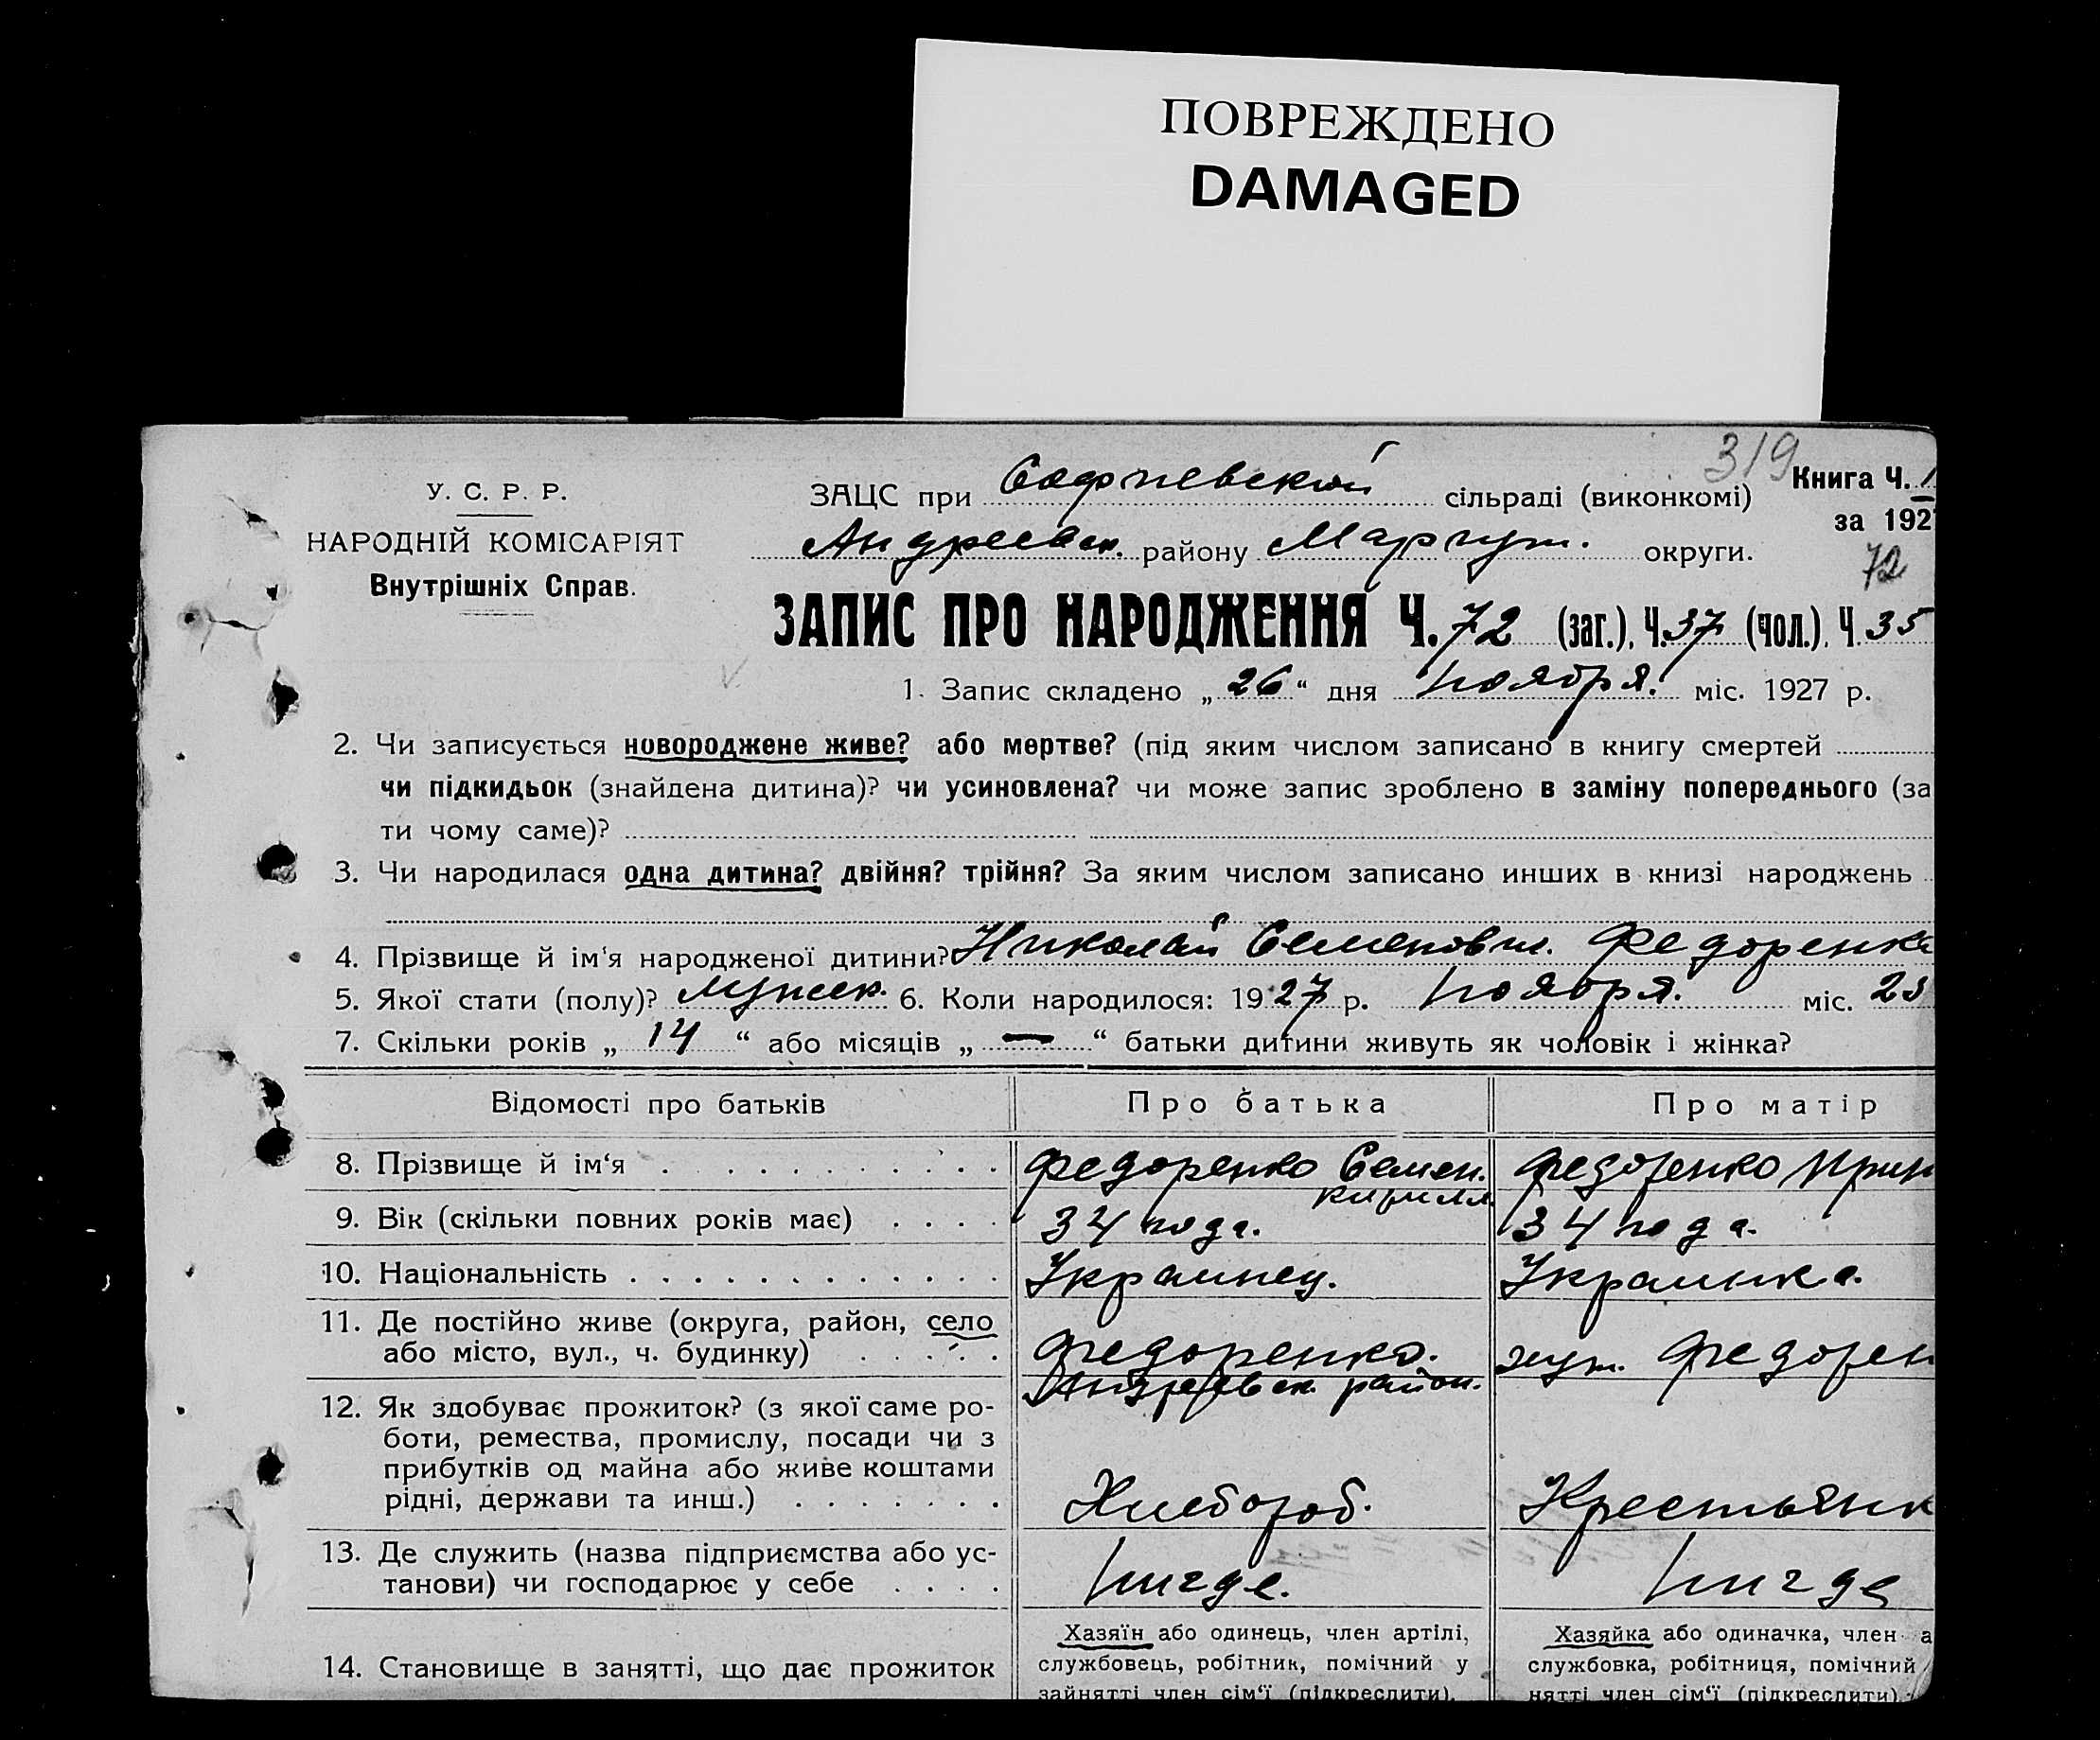 ПОВРЕЖДЕНО
DAMAGED
319
У. С. Р. Р.
НАРОДНІЙ КОМІСАРІЯТ
Внутрішніх Справ.
ЗАЦС при Софиевской сільраді (виконкомі)
Книга Ч. 1
за 192
Андреевск. району Мариуп. округи.
72
ЗАПИС ПРО НАРОДЖЕННЯ Ч. 72 (заг.), Ч. 37 (чол.), Ч. 35
1. Запис складено „ 26 “ дня ноября. міс. 1927 р.
2. Чи записується новороджене живе? або мертве? (під яким числом записано в книгу смертей
чи підкидьок (знайдена дитина)? чи усиновлена? чи може запис зроблено в заміну попереднього (за
ти чому саме)?
3. Чи народилася одна дитина? двійня? трійня? За яким числом записано инших в книзі народжень
4. Прізвище й ім‘я народженої дитини? Николай Семенович. Федоренко
5. Якої стати (полу)? мужск. 6. Коли народилося: 1927 р. ноября. міс. 23
7. Скільки років „ 14 “ або місяців „ — “ батьки дитини живуть як чоловік і жінка?
Відомості про батьків Про батька Про матір
8. Прізвище й ім‘я Федоренко Семен. Кирилл. Федоренко Ирин
9. Вік (скільки повних років має) 34 года. 34 года.
10. Національність Украинец. Украинка.
11. Де постійно живе (округа, район, село
або місто, вул., ч. будинку) Федоренко. хут. Федорен
Андреевск. район.
12. Як здобуває прожиток? (з якої саме ро-
боти, ремества, промислу, посади чи з
прибутків од майна або живе коштами
рідні, держави та инш.) Хлебороб. Крестьянк
13. Де служить (назва підприємства або ус-
танови) чи господарює у себе нигде. нигде
14. Становище в занятті, що дає прожиток
Хазяїн або одинець, член артілі,
службовець, робітник, помічний у
зайнятті член сім‘ї (підкреслити).
Хазяйка або одиначка, член а
службовка, робітниця, помічний
нятті член сім‘ї (підкреслити).